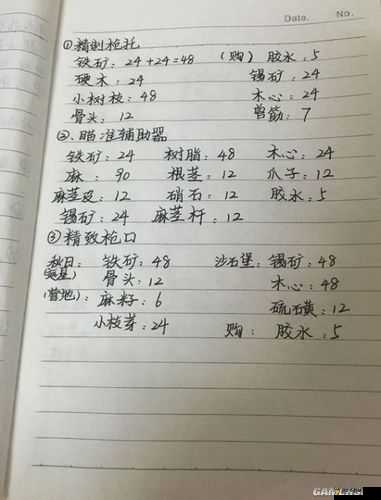 Data.          No.
①精制枪托
铁矿：24+24=48  （购）胶水：5
硬木：24  锡矿：24
小树枝：48  木心：24
骨头：12  兽筋：7
②瞄准辅助器
铁矿：24  树脂：48  木心：24
麻：90  根茎：12  爪子：12
麻茎皮：12  硝石：12  胶水：5
锡矿：24  麻茎杆：12
③精致枪口
秋日：铁矿：48  沙石堡：锡矿：48
骨头：12  木心：48
(营地)：麻籽：6  硫磺：12
小枝芽：24  购：胶水：5